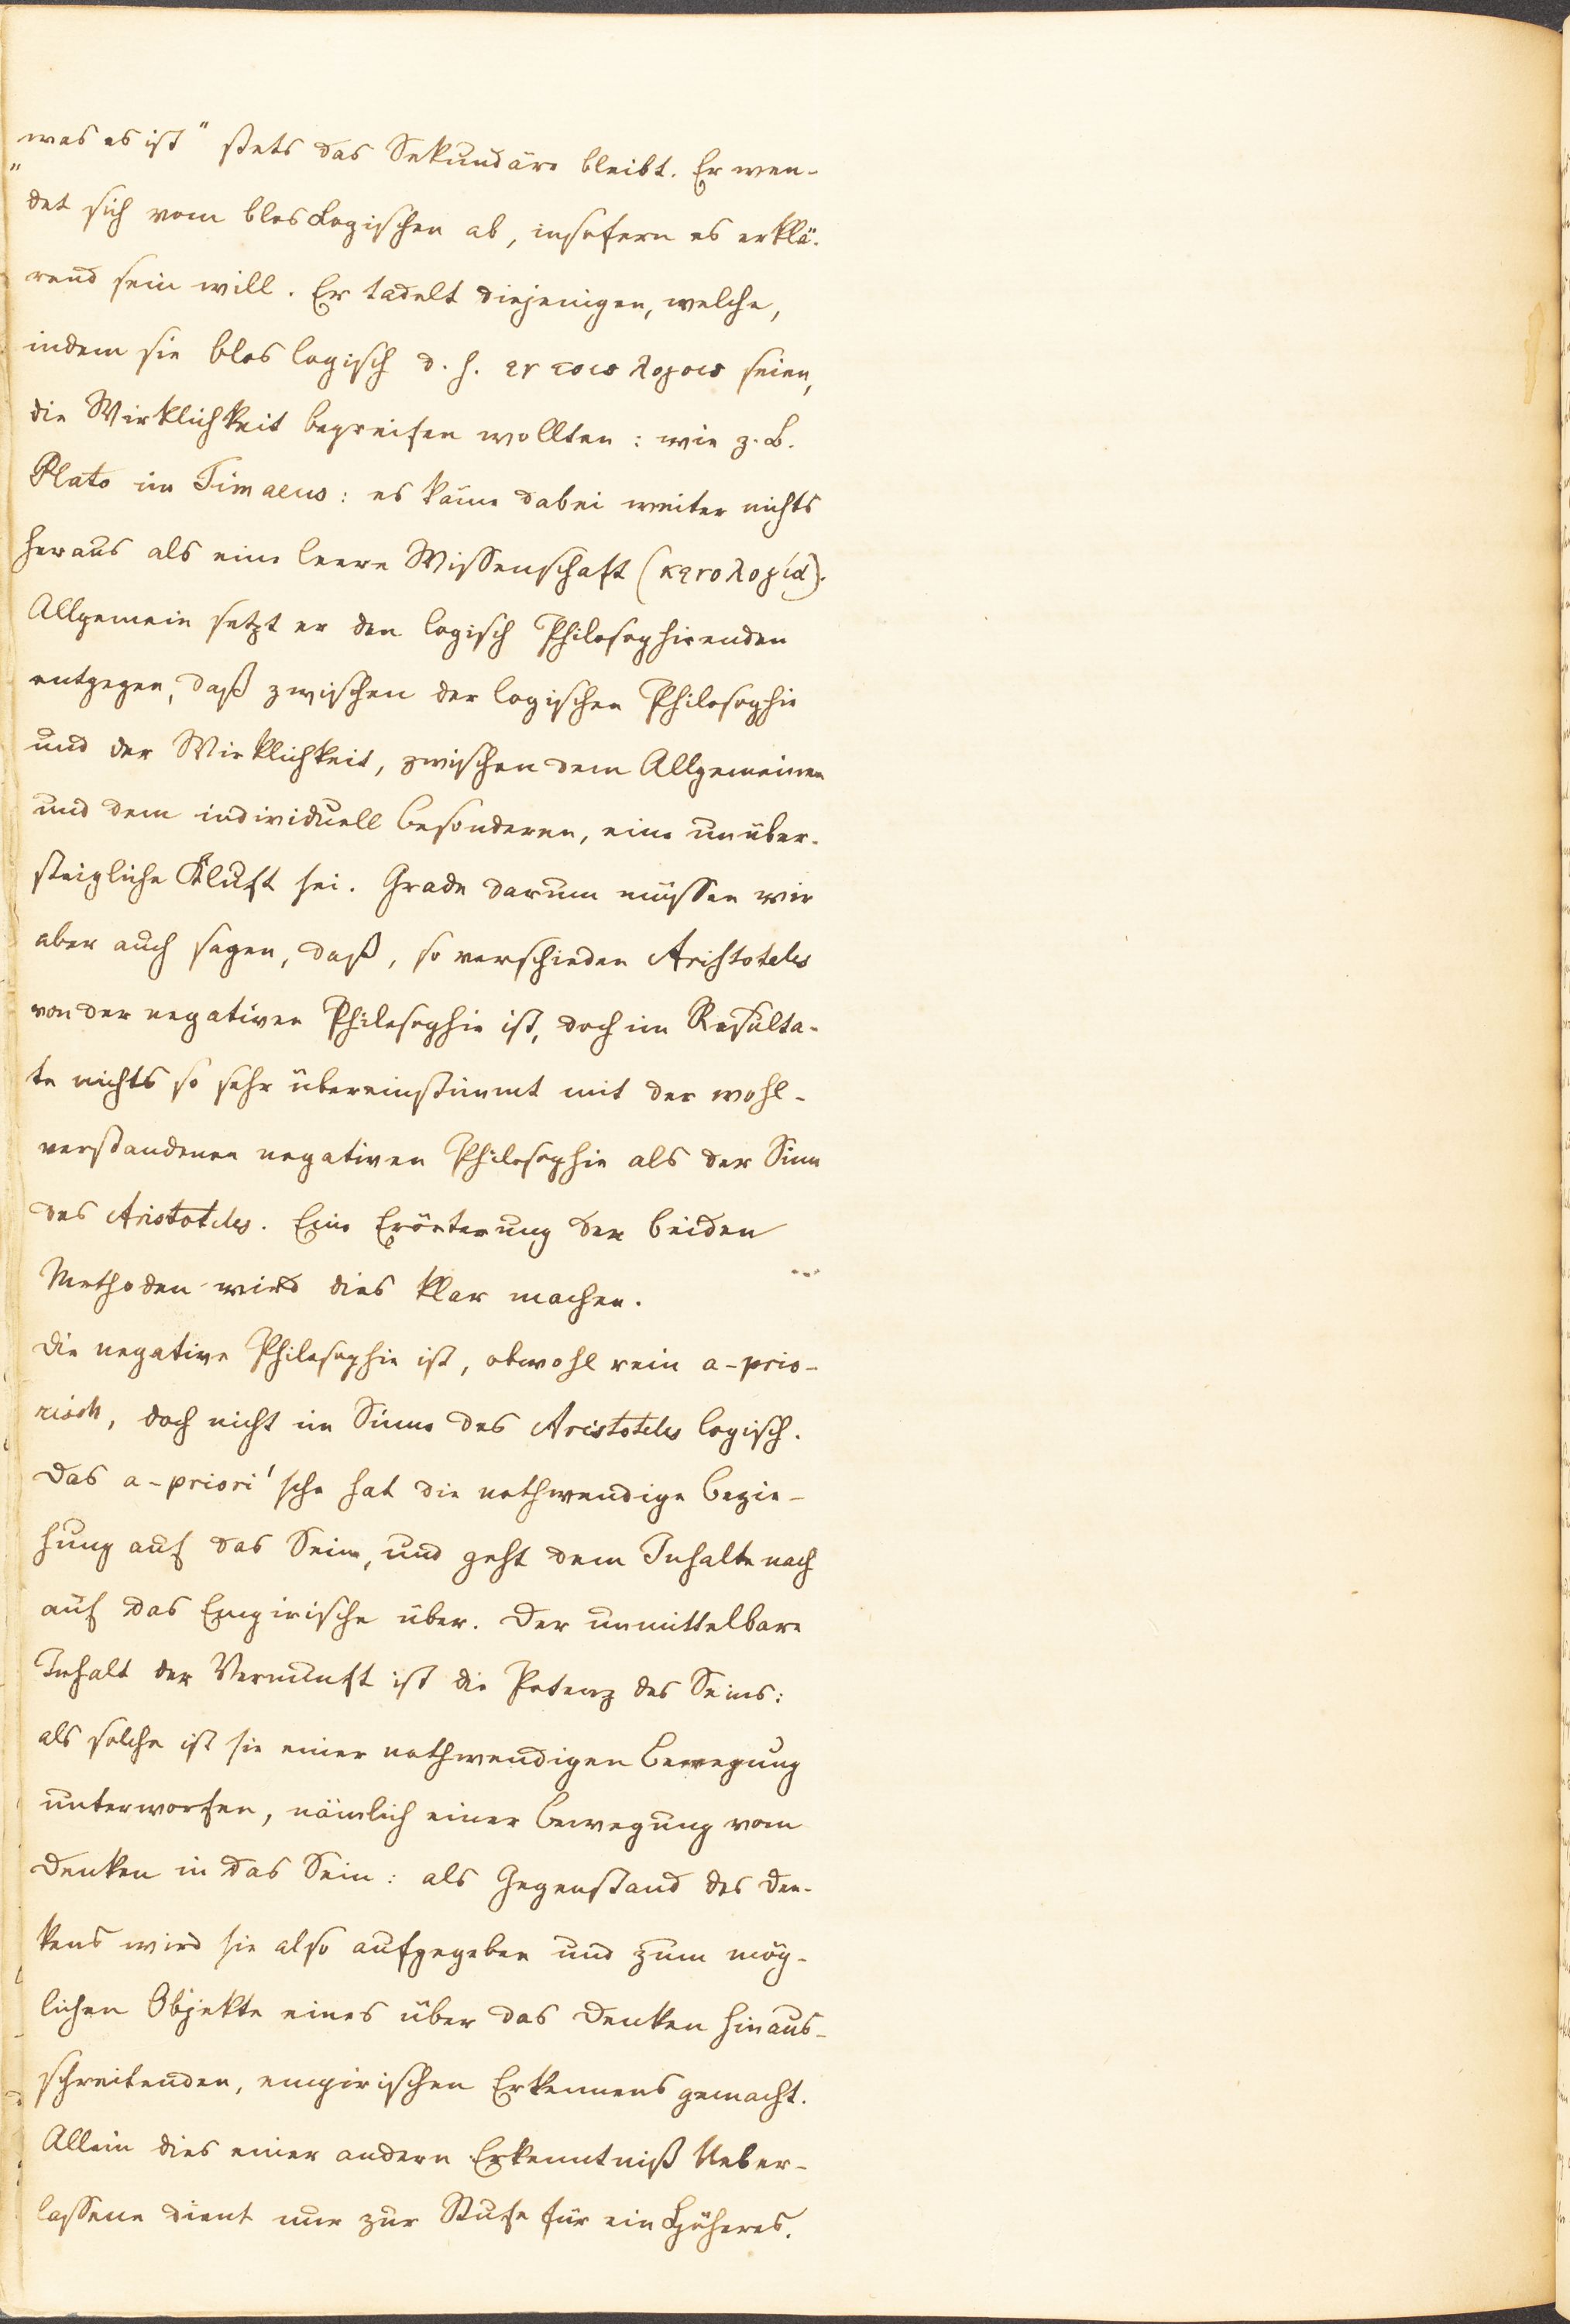 „was es ist" stets das Sekundäre bleibt. Er wen-
det sich vom blos Logischen ab, insofern es erklä-
rend sein will. Er tadelt diejenigen, welche,
indem sie blos logisch d. h. εν τοις λογοις seien,
die Wirklichkeit begreifen wollten: wie z. B.
Plato im Timaeus: es käme dabei weiter nichts
heraus als eine leere Wissenschaft (κενολογία).
Allgemein setzt er den logisch Philosophirenden
entgegen, daß zwischen der logischen Philosophie
und der Wirklichkeit, zwischen dem Allgemeinen
und dem individuell besonderen, eine unüber-
steigliche Kluft sei. Grade darum müssen wir
aber auch sagen, daß, so verschieden Aristoteles
von der negativen Philosophie ist, doch im Resulta-
te nichts so sehr übereinstimmt mit der wohl-
verstandenen negativen Philosophie als der Sinn
des Aristoteles. Eine Erörterung der beiden
Methoden wird dies klar machen.
Die negative Philosophie ist, obwohl rein a-prio-
risch, doch nicht im Sinne des Aristoteles logisch.
Das a-priori'sche hat die nothwendige Bezie-
hung auf das Sein, und geht dem Inhalte nach
auf das Empirische über. Der unmittelbare
Inhalt der Vernunft ist die Potenz des Seins:
als solche ist sie einer nothwendigen Bewegung
unterworfen, nämlich einer Bewegung vom
Denken in das Sein: als Gegenstand des Den-
kens wird sie also aufgegeben und zum mög-
lichen Objekte eines über das Denken hinaus-
schreitenden, empirischen Erkennens gemacht.
Allein dies einer andern Erkenntniß Ueber-
lassene dient nur zur Stufe für ein Höheres.